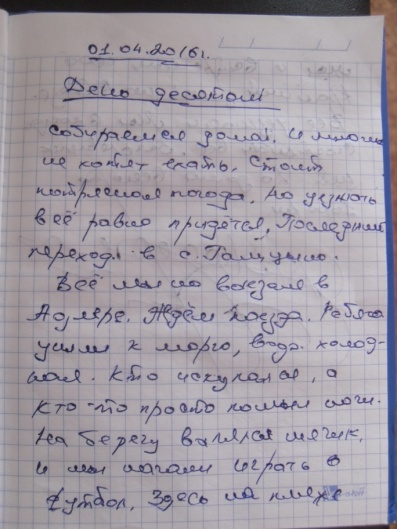 01.04.2016г.
День десятый
Собираемся домой. И многие
не хотят ехать. Стоит
потрясная погода. Но уезжать
всё равно придётся. Последний
переход в с. Галицыно.
Всё мы на вокзале в
Адлере. Ждём поезда. Ребята
ушли к морю, вода холод-
ная. Кто искупался, а
кто-то просто помыл ноги.
На берегу валялся мячик,
и мы начали играть в
футбол. Здесь на пляже